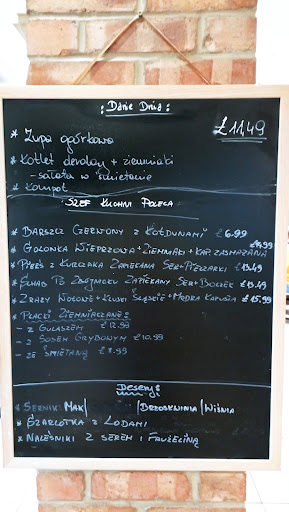 : Danie Dnia :
£ 11,49
* Zupa ogórkowa
* Kotlet devolay + ziemniaki
- sałata w śmietanie
* Kompot
Szef Kuchni Poleca
* Barszcz Czerwony z Kołdunami £ 6.99
* Golonka Wieprzowa + Ziemniaki + Kap. zasmażana £ 14.99
* Pierś z Kurczaka Zapiekana Ser + Pieczarki £ 13.49
* Schab Po Zbójnicku Zapiekany Ser + Boczek £ 13.49
* Zrazy Wołowe + Kluski Śląskie + Modra Kapusta £ 15.99
* Placki Ziemniaczane :
- z Gulaszem £ 12.99
- z Sosem Grybowym £ 10.99
- ze Śmietaną £ 8.99
Desery :
* Sernik: Mak | | Brzoskwinia | Wiśnia
* Szarlotka z Lodami
* Naleśniki z serem i Frużeliną